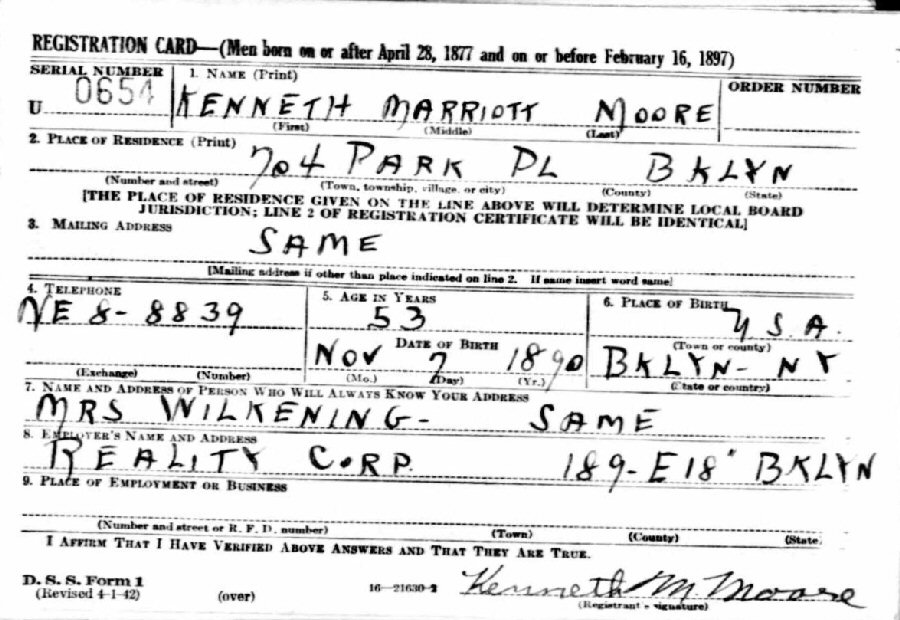 REGISTRATION CARD—(Men born on or after April 28, 1877 and on or before February 16, 1897)
SERIAL NUMBER 1. NAME (Print) ORDER NUMBER
U 0654 KENNETH MARRIOTT MOORE
(First) (Middle) (Last)
2. PLACE OF RESIDENCE (Print)
704 PARK PL BKLYN
(Number and street) (Town, township, village, or city) (County) (State)
[THE PLACE OF RESIDENCE GIVEN ON THE LINE ABOVE WILL DETERMINE LOCAL BOARD
JURISDICTION; LINE 2 OF REGISTRATION CERTIFICATE WILL BE IDENTICAL]
3. MAILING ADDRESS
SAME
[Mailing address if other than place indicated on line 2. If same insert word same]
4. TELEPHONE 5. AGE IN YEARS 6. PLACE OF BIRTH
NE 8-8839 53 U.S.A.
DATE OF BIRTH (Town or county)
Nov 7 1890 BKLYN-NY
(Exchange) (Number) (Mo.) (Day) (Yr.) (State or country)
7. NAME AND ADDRESS OF PERSON WHO WILL ALWAYS KNOW YOUR ADDRESS
MRS WILKENING- SAME
8. EMPLOYER'S NAME AND ADDRESS
REALITY CORP 189-E18' BKLYN
9. PLACE OF EMPLOYMENT OR BUSINESS
(Number and street or R. F. D. number) (Town) (County) (State)
I AFFIRM THAT I HAVE VERIFIED ABOVE ANSWERS AND THAT THEY ARE TRUE.
D. S. S. Form 1
(Revised 4-1-42) (over) 16—21630-2 Kenneth M Moore
(Registrant's signature)